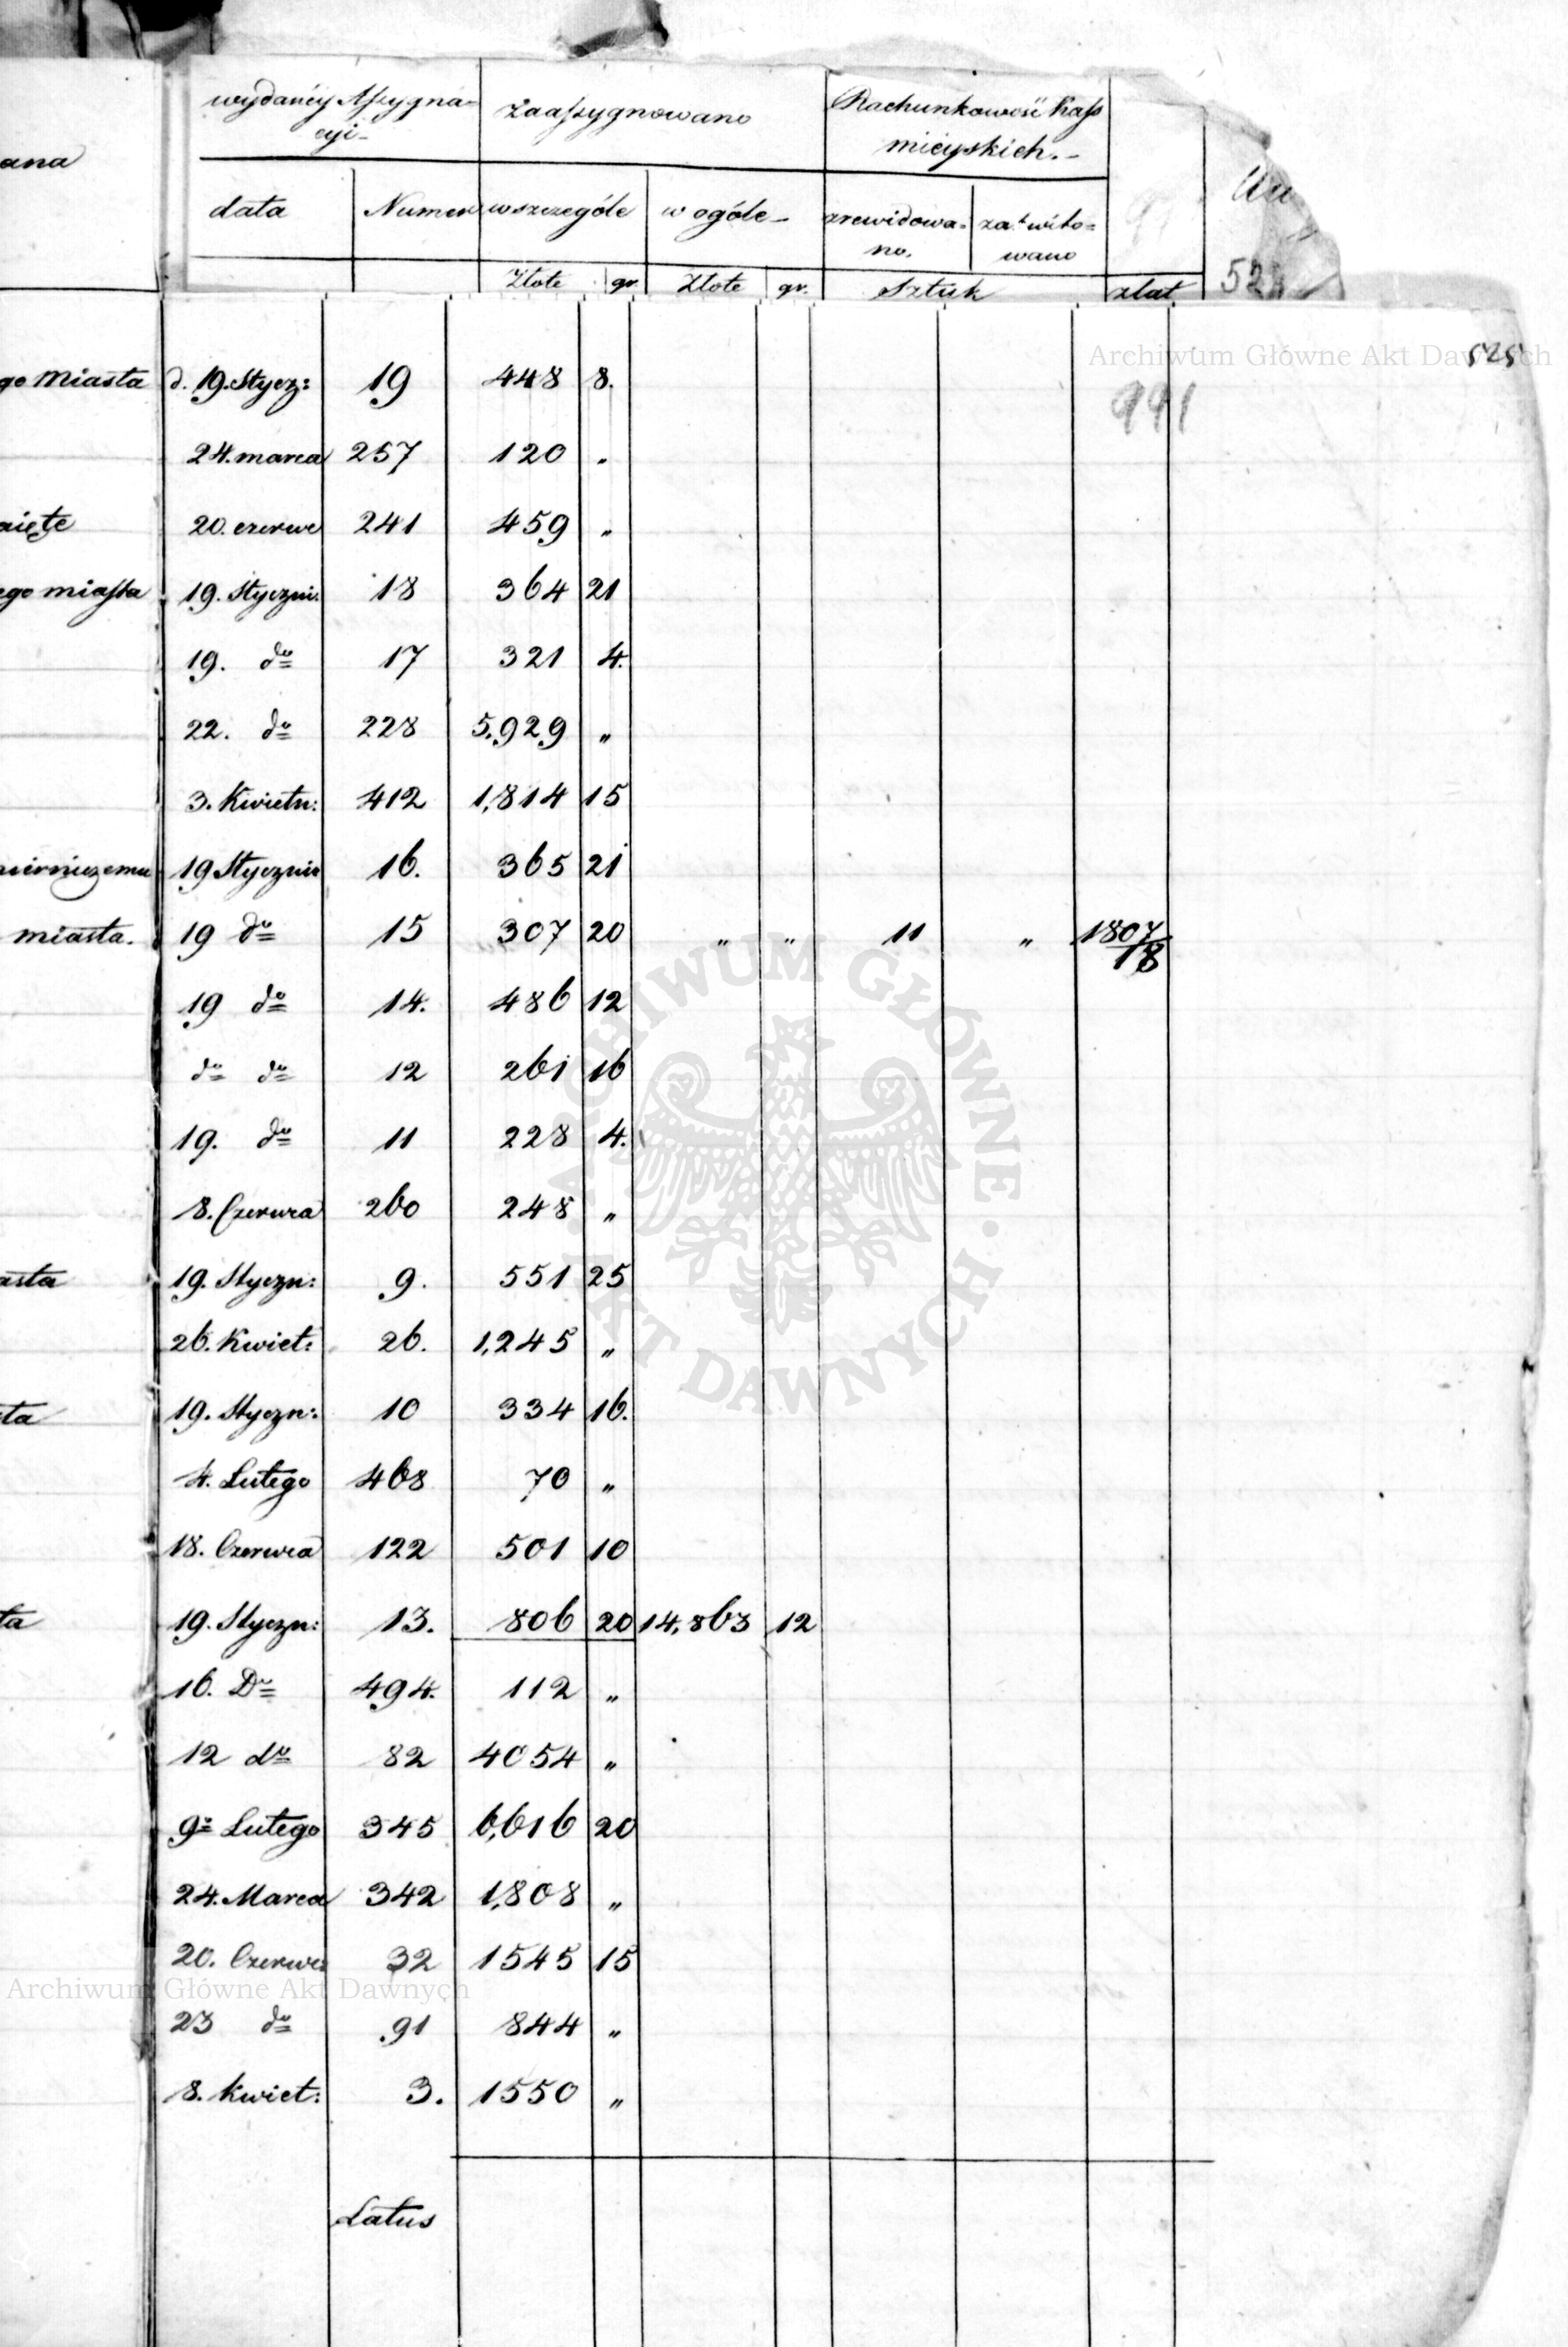 wydanéy Assygna=
cyi-
Zaassygnowano
Rachunkowość Kass
mieyskich.-
ana
data
Numer
w szczególe
w ogóle-
zrewidowa=
no.
za.kwito=
wano
528
Złote gr. Złote gr. Sztuk z lat
Archiwum Główne Akt Dawnych
525
991
go Miasta d. 19. Stycz: 19 448 8.
24. marca 257 120 "
20. czerwc 241 459 "
ego miasta 19. Styczni. 18 364 21
19. do 17 321 4.
22. do 228 5,929 "
3. Kwietn: 412 1,814 15
mierniczemu 19 Stycznia 16. 365 21
miasta. 19 do 15 307 20 " " 11 " 1807/18
19 do 14. 486 12
do do 12 261 16
19. do 11 228 4.
8. Czerwca 260 248 "
asta 19. Styczn: 9. 551 25
26. Kwiet: 26. 1,245 "
ta 19. Styczn: 10 334 16.
4. Lutego 468 70 "
18. Czerwca 122 501 10
ta 19. Styczn: 13. 806 20 14,863 12
16. Do 494. 112 "
12 do 82 4054 "
9o Lutego 345 6,616 20
24. Marca 342 1,808 "
20. Czerwc: 32 1545 15
Archiwum Główne Akt Dawnych
23 do 91 844 "
8. Kwiet: 3. 1550 "
Latus
ARCHIWUM GŁÓWNE · AKT DAWNYCH ·